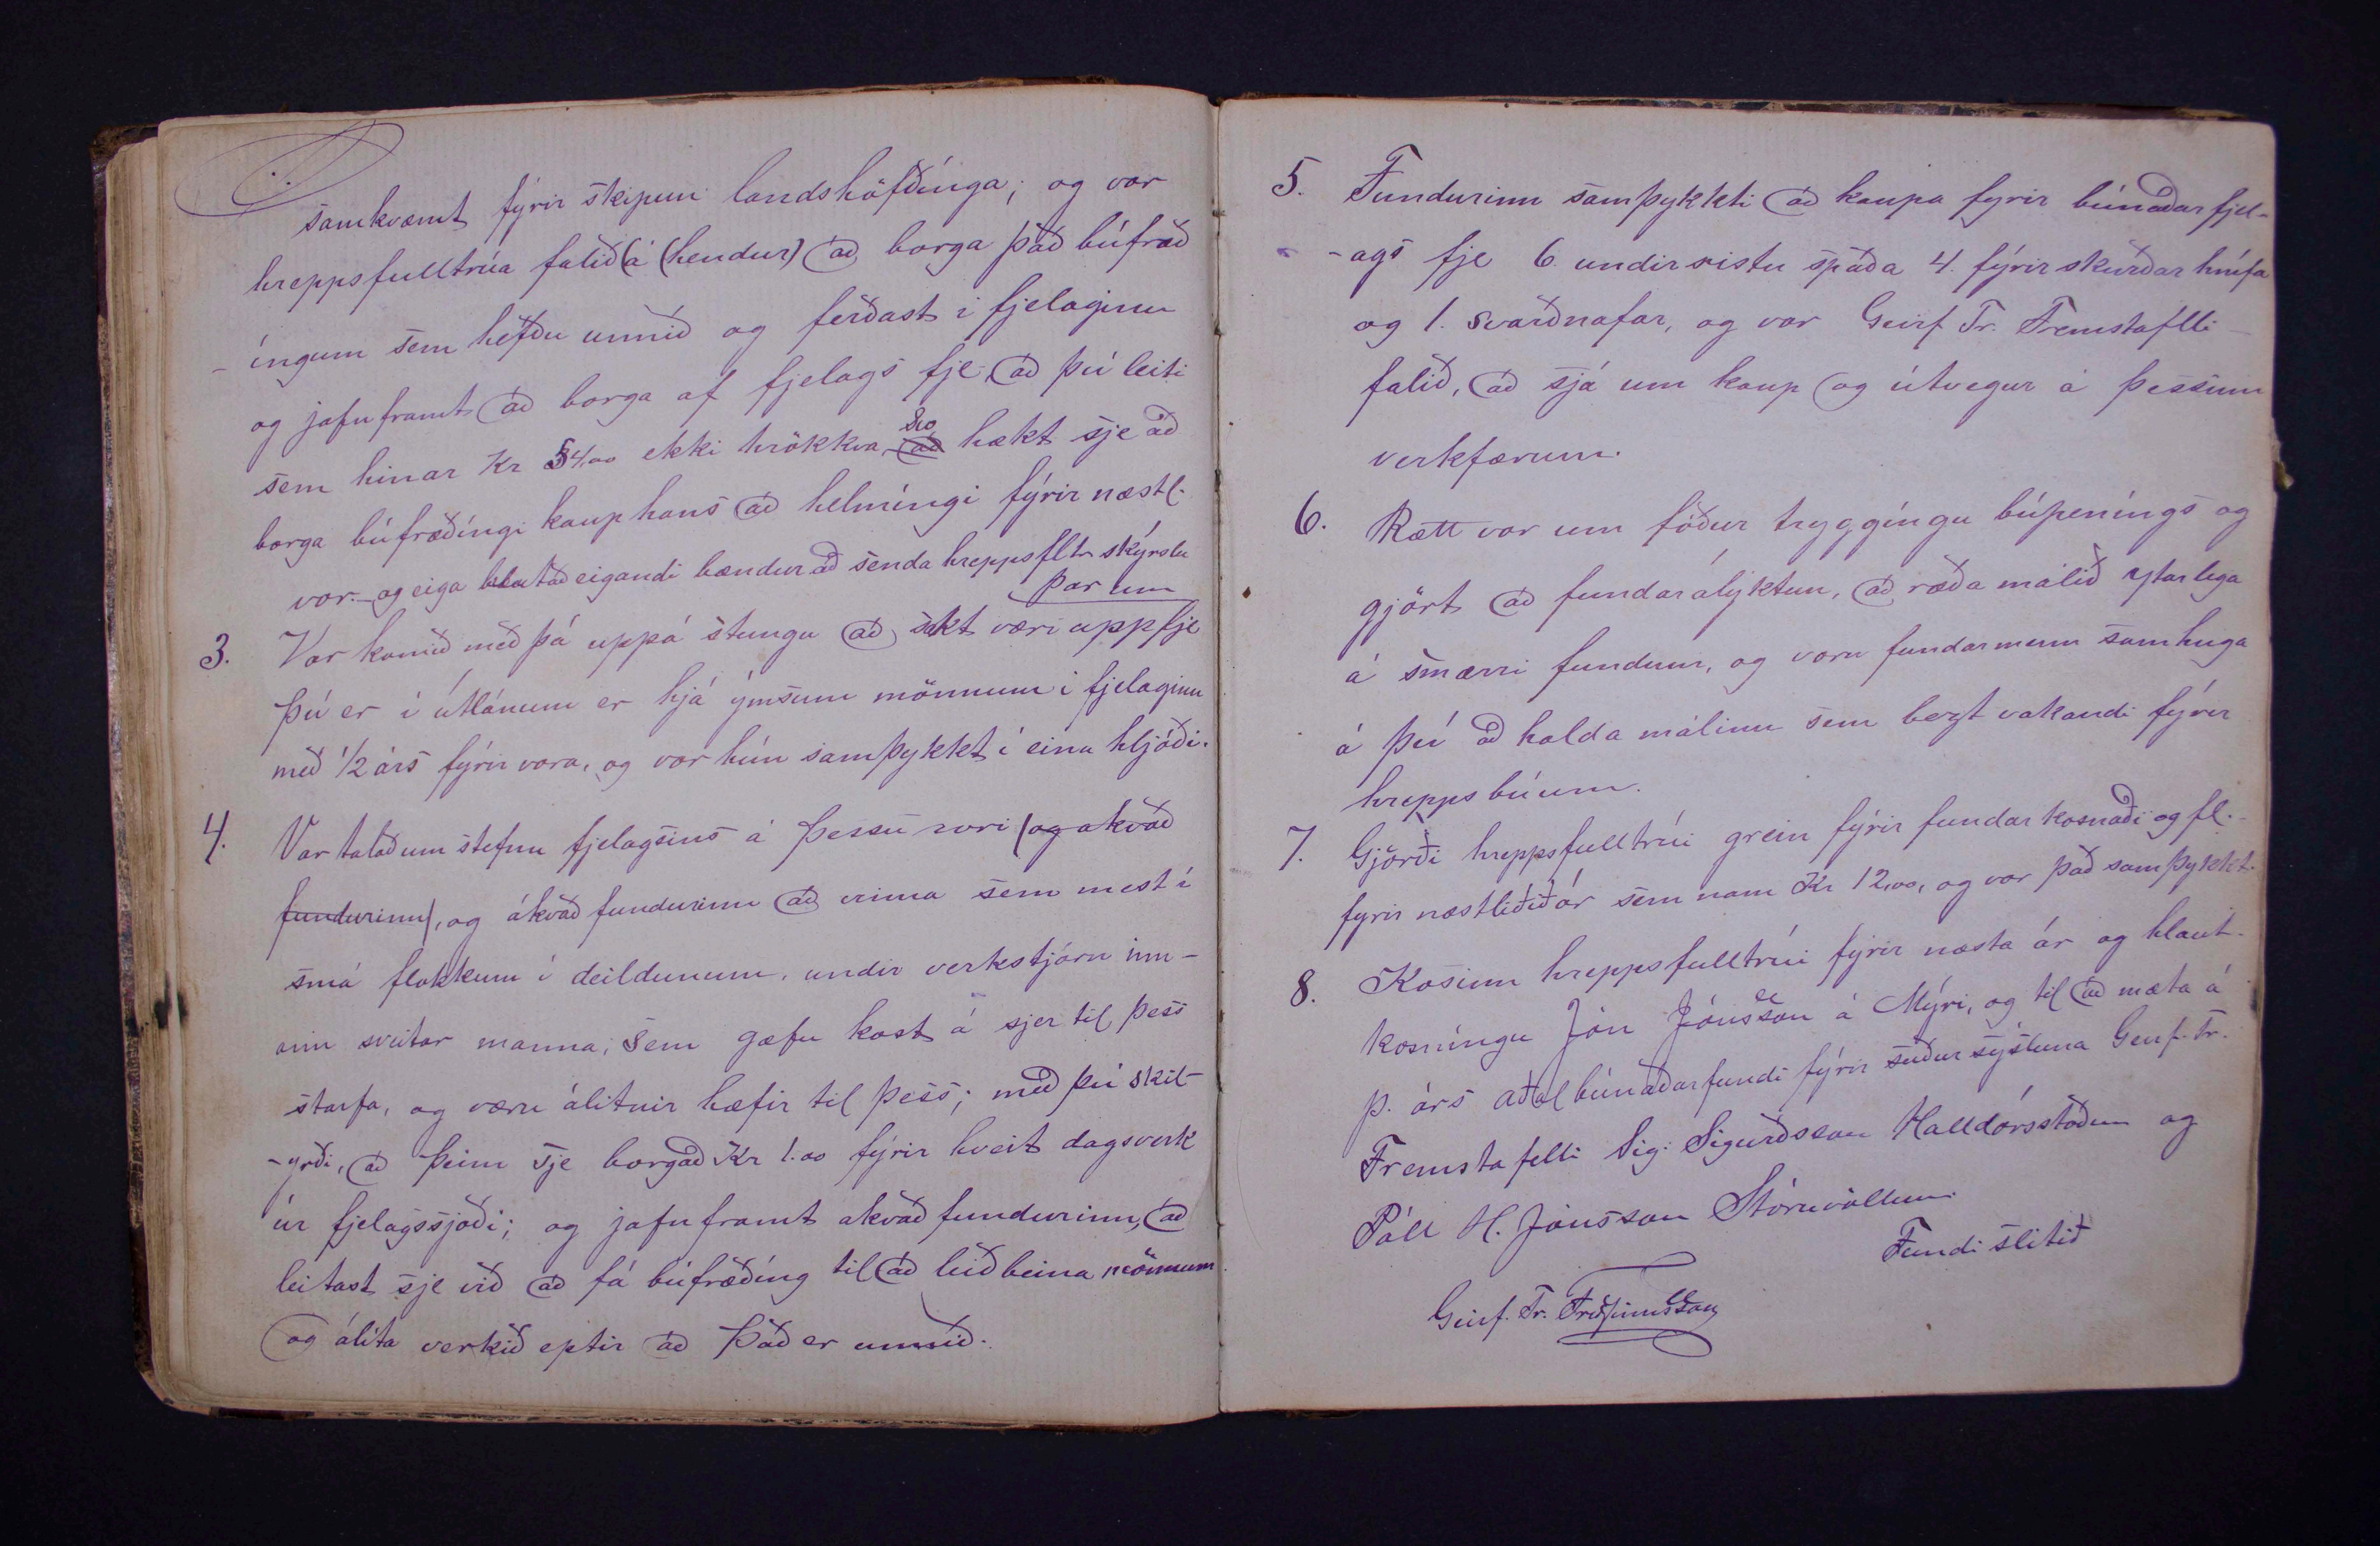 samkvæmt fýrir skipun landshöfðínga; og var
hreppsfulltrúa falið (á (hendur) að borga það búfræð
-íngum sem hefðu unnið og ferðast í fjelaginu
og jafnframt að borga af fjelags fje, að því leiti
sem hinar Kr 54,00 ekki hrökkva, svo hækt sje að
borga búfræðíngi kaup hans að helmíngi fýrir næstl.
vor. og eiga hlutaðeigandi bændur að senda hreppsfltr skýrslu
þar um
3. Var komið með þá uppá stungu að sekt væri upp fje
því er í útlánum er hjá ýmsum mönnum í fjelaginu
með 1/2 árs fýrir vara, og var hún samþykkt í einu hljóði.
4. Var talað um stefnu fjelagsins á þessu vori (og akvað
fundurinn), og ákvað fundurinn að vinna sem mest í
smá flokkum í deildunum, undir verkstjórn inn-
an sveitar manna, sem gæfu kost á sjer til þess
starfa, og væru álitnir hæfir til þess; með því skil-
-yrði, að þeim sje borgað Kr 1.00 fýrir hvert dagsverk
úr fjelagssjóði; og jafnframt akvað fundurinn, að
leitast sje við að fá búfræðíng til að leiðbeina mönnum
og álíta verkið eptir að það er unnið.
5. Fundurinn samþykkti að kaupa fyrir búnaðarfjel-
-ags fje 6 undirristu spaða 4. fýrirskurðar hnífa
og 1. svarðnafar, og var Geirf. Tr. Fremstaflli
falið, að sjá um kaup og útvegur á þessum
verkfærum.
6. Rætt var um fóður tryggíngu búpeníngs og
gjört að fundarályktun, að ræða málið ytarlega
á smærri fundum, og voru fundarmenn samhuga
á því að halda málinu sem bezt vakandi fýrir
hreppsbúum.
7. Gjörði hreppsfulltrúi grein fýrir fundarkosnaði og fl.
fyrir næstliðið ár sem nam Kr 12,00, og var það samþykkt.
8. Kosinn hreppsfulltrúi fýrir næsta ár og hlaut
kosníngu Jón Jónsson á Mýri, og til að mæta á
þ. árs aðalbúnaðarfundi fýrir suðursýsluna Geirf. Tr.
Fremstafelli Sig. Sigurðsson Halldórsstöðum og
Páll H. Jónsson Stóruvöllum.
Fundi slitið
Geirf. Tr. Friðfinnsson